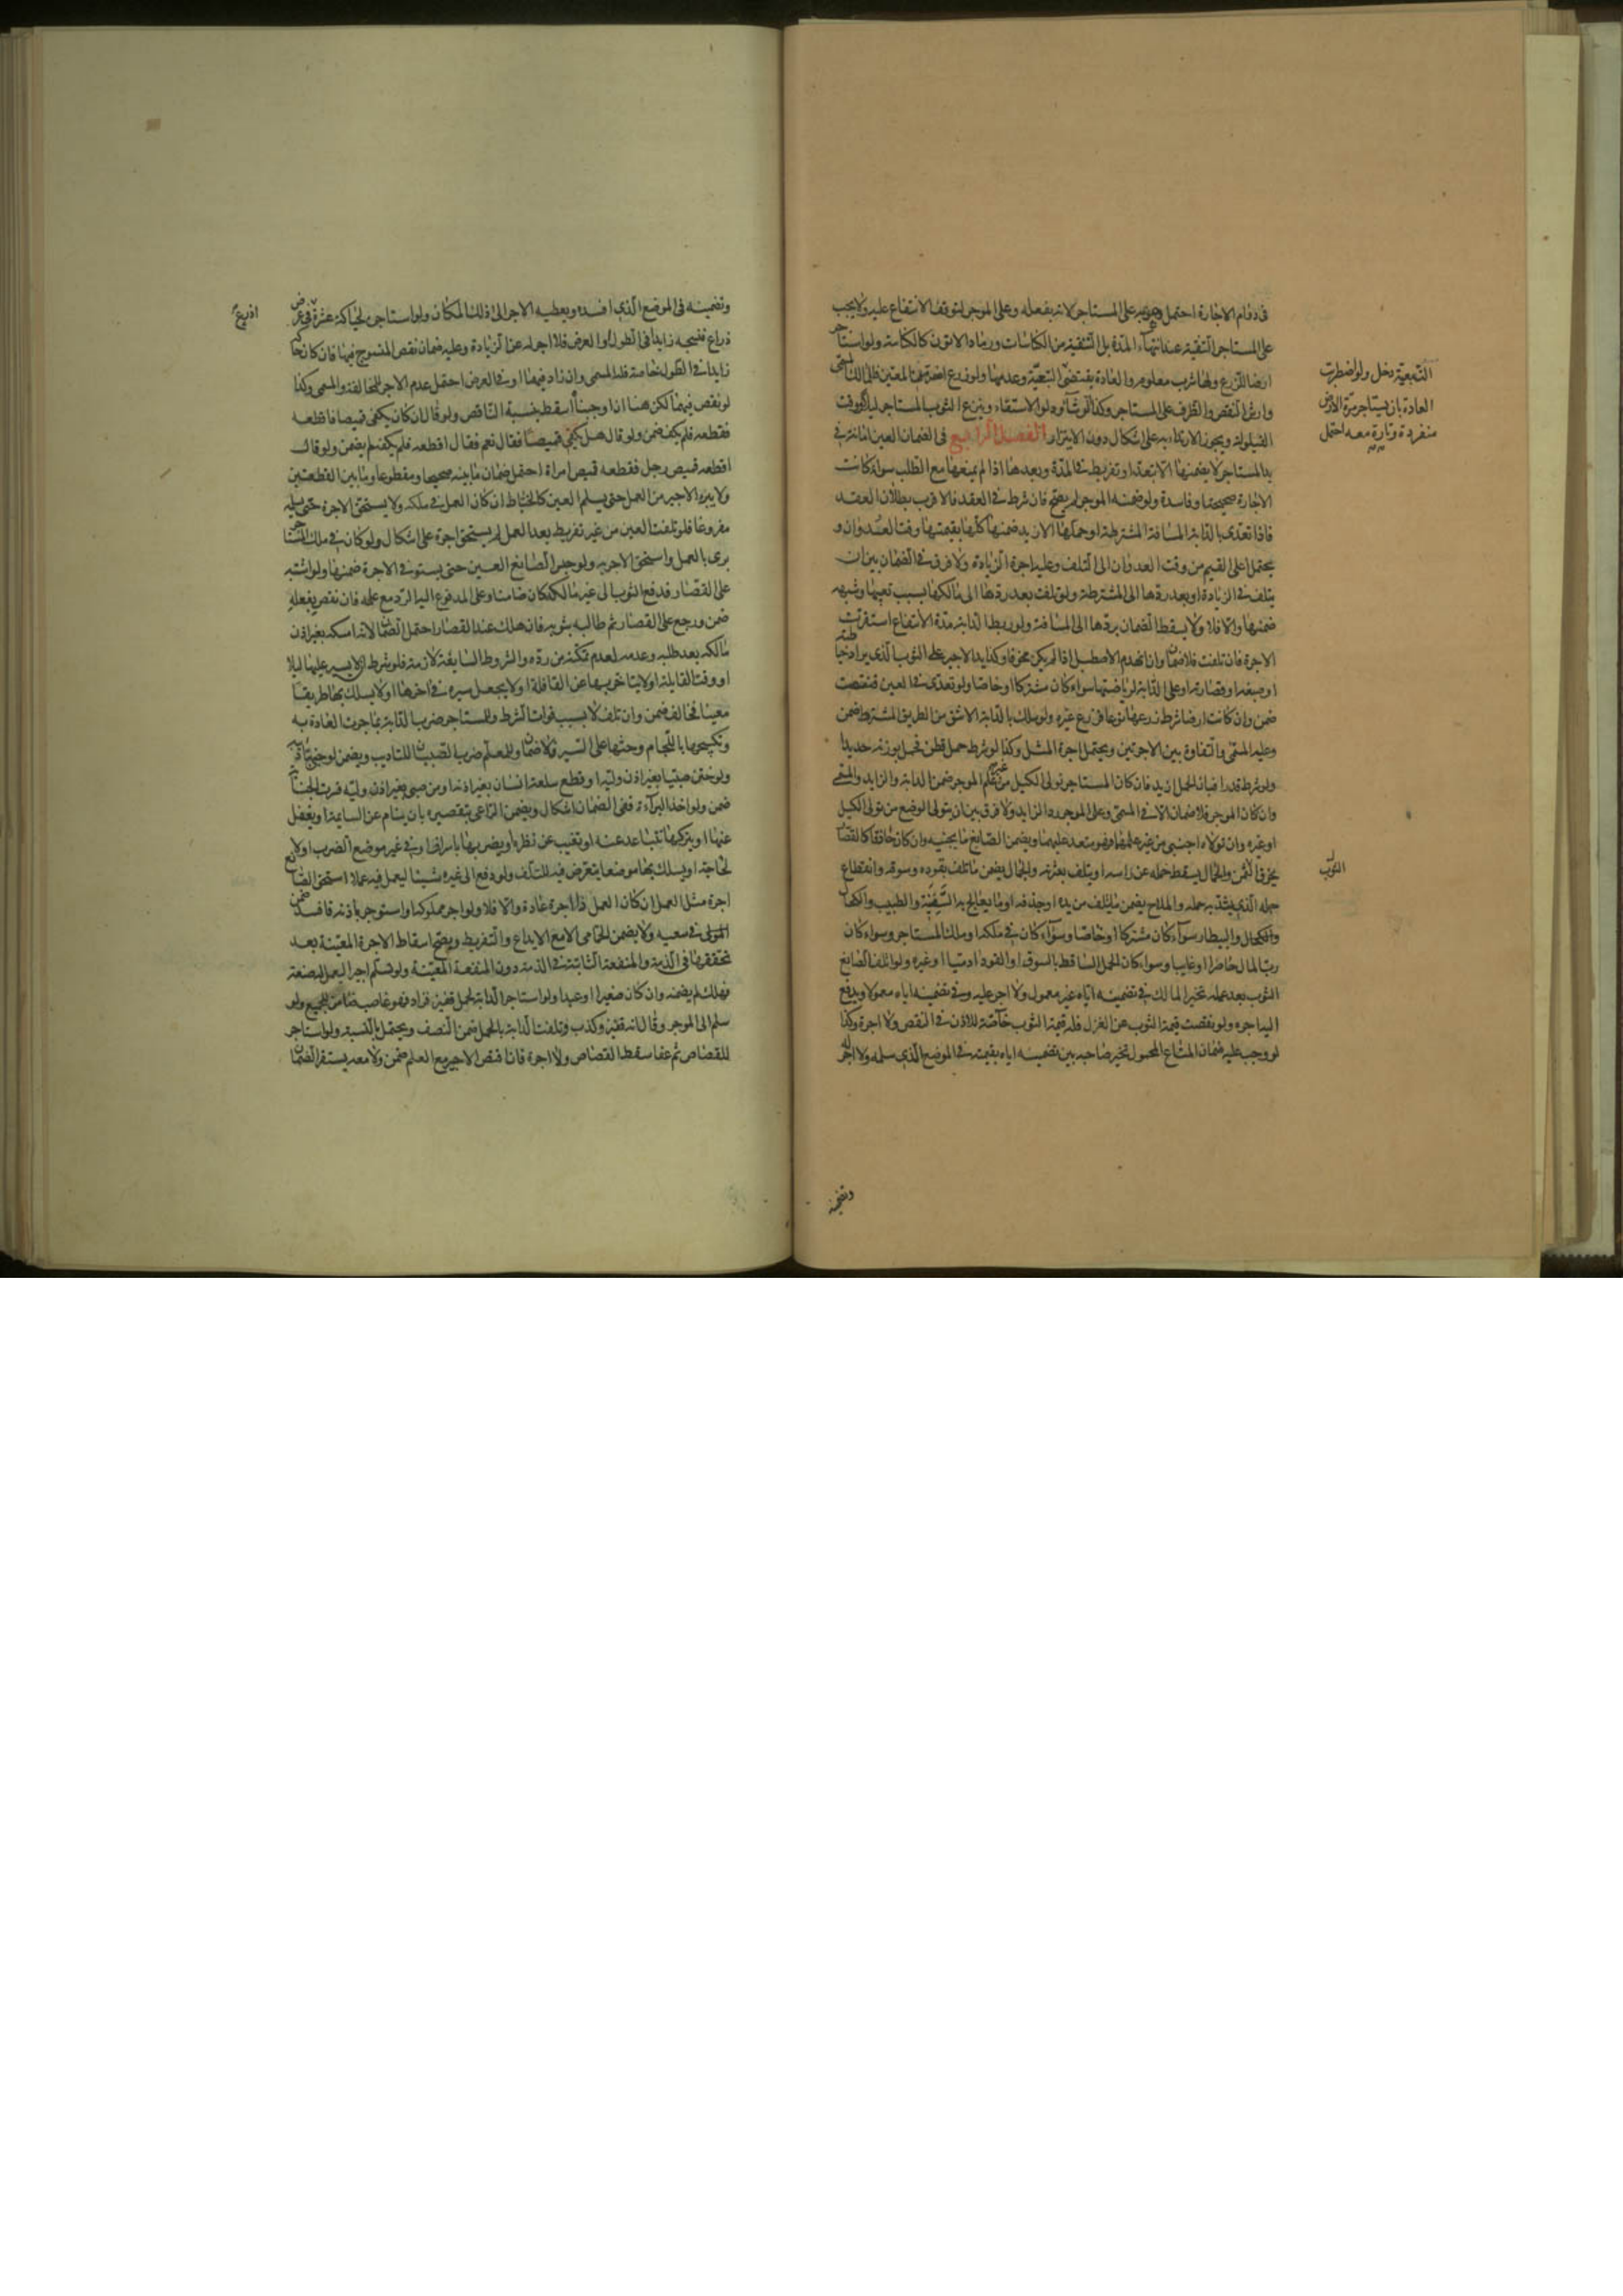 في دوام الاجارة احتمل وجوبه على المستاجر لانه بفعله وعلى الموجر لتوقف الانتفاع عليه ولا يجب
على المستاجر التنقية عند انتهاء المدة بل التنقية من الكناسات ورماد الاتون كالكناسة ولو استاجر
ارضا للزرع ولها شرب معلوم والعادة يقتضي التبعية
التبعية دخل ولو اضطربت
العادة بان يستاجر مرة الارض
منفردة وتارة معه احتمل
وعدمها ولو زرع اضر من المعين فللمالك المسمى
وارش النقص والظرف على المستاجر وكذا الرشا ودلو الاستقاء وينزع الثوب المستاجر ليلا ووقت
القيلولة ويجوز الارتداء به على اشكال دون الايتزار الفصل الرابع في الضمان العين امانة في
يد المستاجر لا يضمنها الا بتعد او تفريط في المدة وبعدها اذا لم يمنعها مع الطلب سواء كانت
الاجارة صحيحة او فاسدة ولو ضمنه الموجر لم يصح فان شرط في العقد فالاقرب بطلان العقد
فاذا تعدى بالدابة المسافة المشترطة او حملها الازيد ضمنها كلها بقيمتها وقت العدوان و
يحتمل اعلى القيم من وقت العدوان الى التلف وعليه اجرة الزيادة ولا فرق في الضمان بين ان
يتلف في الزيادة او بعد ردها الى المشترطة ولو تلفت بعد ردها الى مالكها بسبب تعبها وشبهه
ضمنها والا فلا ولا يسقط الضمان بردها الى المسافة ولو ربط الدابة مدة الانتفاع استقرت
الاجرة فان تلفت فلا ضمان وان انهدم الاصطبل اذا لم يكن مخوفا وكذا يد الاجير على الثوب الذي يراد خياطته
او صبغه او قصارته او على الدابة لرياضتها سواء كان مشتركا او خاصا ولو تعدى في العين فنقصت
ضمن وان كانت ارضا شرط زرعها نوعا فزرع غيره ولو سلك بالدابة الاشق من الطريق المشترط ضمن
وعليه المسمى والتفاوت بين الاجرتين ويحتمل اجرة المثل وكذا لو شرط حمل قطن فحمل بوزنه حديدا
ولو شرط قدرا فبان الحمل ازيد فان كان المستاجر تولى الكيل من غير علم الموجر ضمن الدابة والزايد والمسمى
وان كان الموجر فلا ضمان الا في المسمى وعلى الموجر رد الزايد ولا فرق بين ان يتولى الوضع من تولى الكيل
او غيره وان تولاه اجنبي من غير علمهما فهو متعد عليهما ويضمن الصانع ما يجنيه وان كان حاذقا كالقصار
يخرق الثوب والحمال يسقط حمله عن راسه او يتلف بعثرته والجمال يضمن ما تلف بقوده وسوقه وانقطاع
حبله الذي يشد به حمله والملاح يضمن ما يتلف من يده او جذفه او ما يعالج به السفينة والطبيب والكحال
والكحال والبيطار سواء كان مشتركا او خاصا وسواء كان في ملكه او ملك المستاجر وسواء كان
رب المال حاضرا او غايبا وسواء كان الحمل الساقط بالسوق او القود ادميا او غيره ولو اتلف الصانع
الثوب بعد عمله تخير المالك في تضمينه اياه غير معمول ولا اجر عليه وفي تضمينه اياه معمولا ويدفع
اليه اجره ولو نقصت قيمة الثوب عن الغزل فله قيمة الثوب خاصة للاذن في النقص ولا اجرة وكذا
لو وجب عليه ضمان المتاع المحمول تخير صاحبه بين تضمينه اياه بقيمته في الموضع الذي سلمه ولا اجر له
وتضمينه
وتضمينه في الموضع الذي افسده ويعطيه الاجر الى ذلك المكان ولو استاجر لحياكة عشرة في عرض
اذرع
ذراع فنسجه زايدا في الطول او العرض فلا اجر له عن الزيادة وعليه ضمان نقص المنسوج فيها فان كان
زايدا في الطول خاصة فله المسمى وان زاد فيهما او في العرض احتمل عدم الاجر للمخالفة والمسمى وكذا
لو نقص فيهما لكن هنا ان اوجبناه اسقط بنسبة الناقص ولو قال ان كان يكفي قميصا فاقطعه
فقطعه فلم يكف ضمن ولو قال هل يكفي قميصا فقال نعم فقال اقطعه فلم يكفه لم يضمن ولو قال
اقطعه قميص رجل فقطعه قميص امراة احتمل ضمان ما بينه صحيحا ومقطوعا وما بين القطعتين
ولا يبرء الاجير من العمل حتى يسلم العين كالخياط ان كان العمل في ملكه ولا يستحق الاجرة حتى يسلمه
مفروغا فلو تلفت العين من غير تفريط بعد العمل لم يستحق اجرة على اشكال ولو كان في ملك المستاجر
برى بالعمل واستحق الاجر به ولو حبس الصانع العين حتى يستوفي الاجرة ضمنها ولو اشتبه
على القصار فدفع الثوب الى غير مالكه كان ضامنا وعلى المدفوع اليه الرد مع علمه فان نقص بفعله
ضمن ورجع على القصار ثم طالبه بثوبه فان هلك عند القصار احتمل الضمان لانه امسكه بغير اذن
مالكه بعد طلبه وعدمه لعدم تمكنه من رده والشروط السايغة لازمة فلو شرط ان لا يسير عليها ليلا
او وقت القايلة او لا يتاخر بها عن القافلة او لا يجعل سيره في اخرها او لا يسلك بها طريقا
معينا فخالف ضمن وان تلف لا بسبب فوات الشرط وللمستاجر ضرب الدابة بما جرت العادة به
وتكبيحها باللجام وحثها على السير ولا ضمان وللمعلم ضرب الصبيان للتاديب ويضمن لو جنى بتاديبه
ولو ختن صبيا بغير اذن وليه او قطع سلعة انسان بغير اذنه او من صبي بغير اذن وليه فسرت الجناية
ضمن ولو اخذ البراءة ففي الضمان اشكال ويضمن الراعي بتقصيره بان ينام عن السايمة او يغفل
عنها او يتركها تتباعد عنه او تغيب عن نظره او يضربها باسراف او في غير موضع الضرب او لا
لحاجة او يسلك بها موضعا يتعرض فيه للتلف ولو دفع الى غيره شيئا ليعمل فيه عملا استحق الصانع
اجرة مثل العمل ان كان العمل ذا اجرة عادة والا فلا ولو اجر مملوكه او استوجر باذنه فافسد ضمن
المولى في سعيه ولا يضمن الحمامي الا مع الايداع والتفريط ويصح اسقاط الاجرة المعينة بعد
تحققها في الذمة والمنفعة الثابتة في الذمة دون المنفعة المعينة ولو تسلم اجيرا ليعمل له صنعة
فهلك لم يضمنه وان كان صغيرا او عبدا ولو استاجر الدابة لحمل قفيز فزاد فهو غاصب ضامن للجميع ولو
سلم الى الموجر وقال انه قفيز وكذب فتلفت الدابة بالحمل ضمن النصف ويحتمل بالنسبة ولو استاجر
للقصاص ثم عفا سقط القصاص ولا اجرة فان اقتص الاجير مع العلم ضمن ولا معه يستقر الضمان